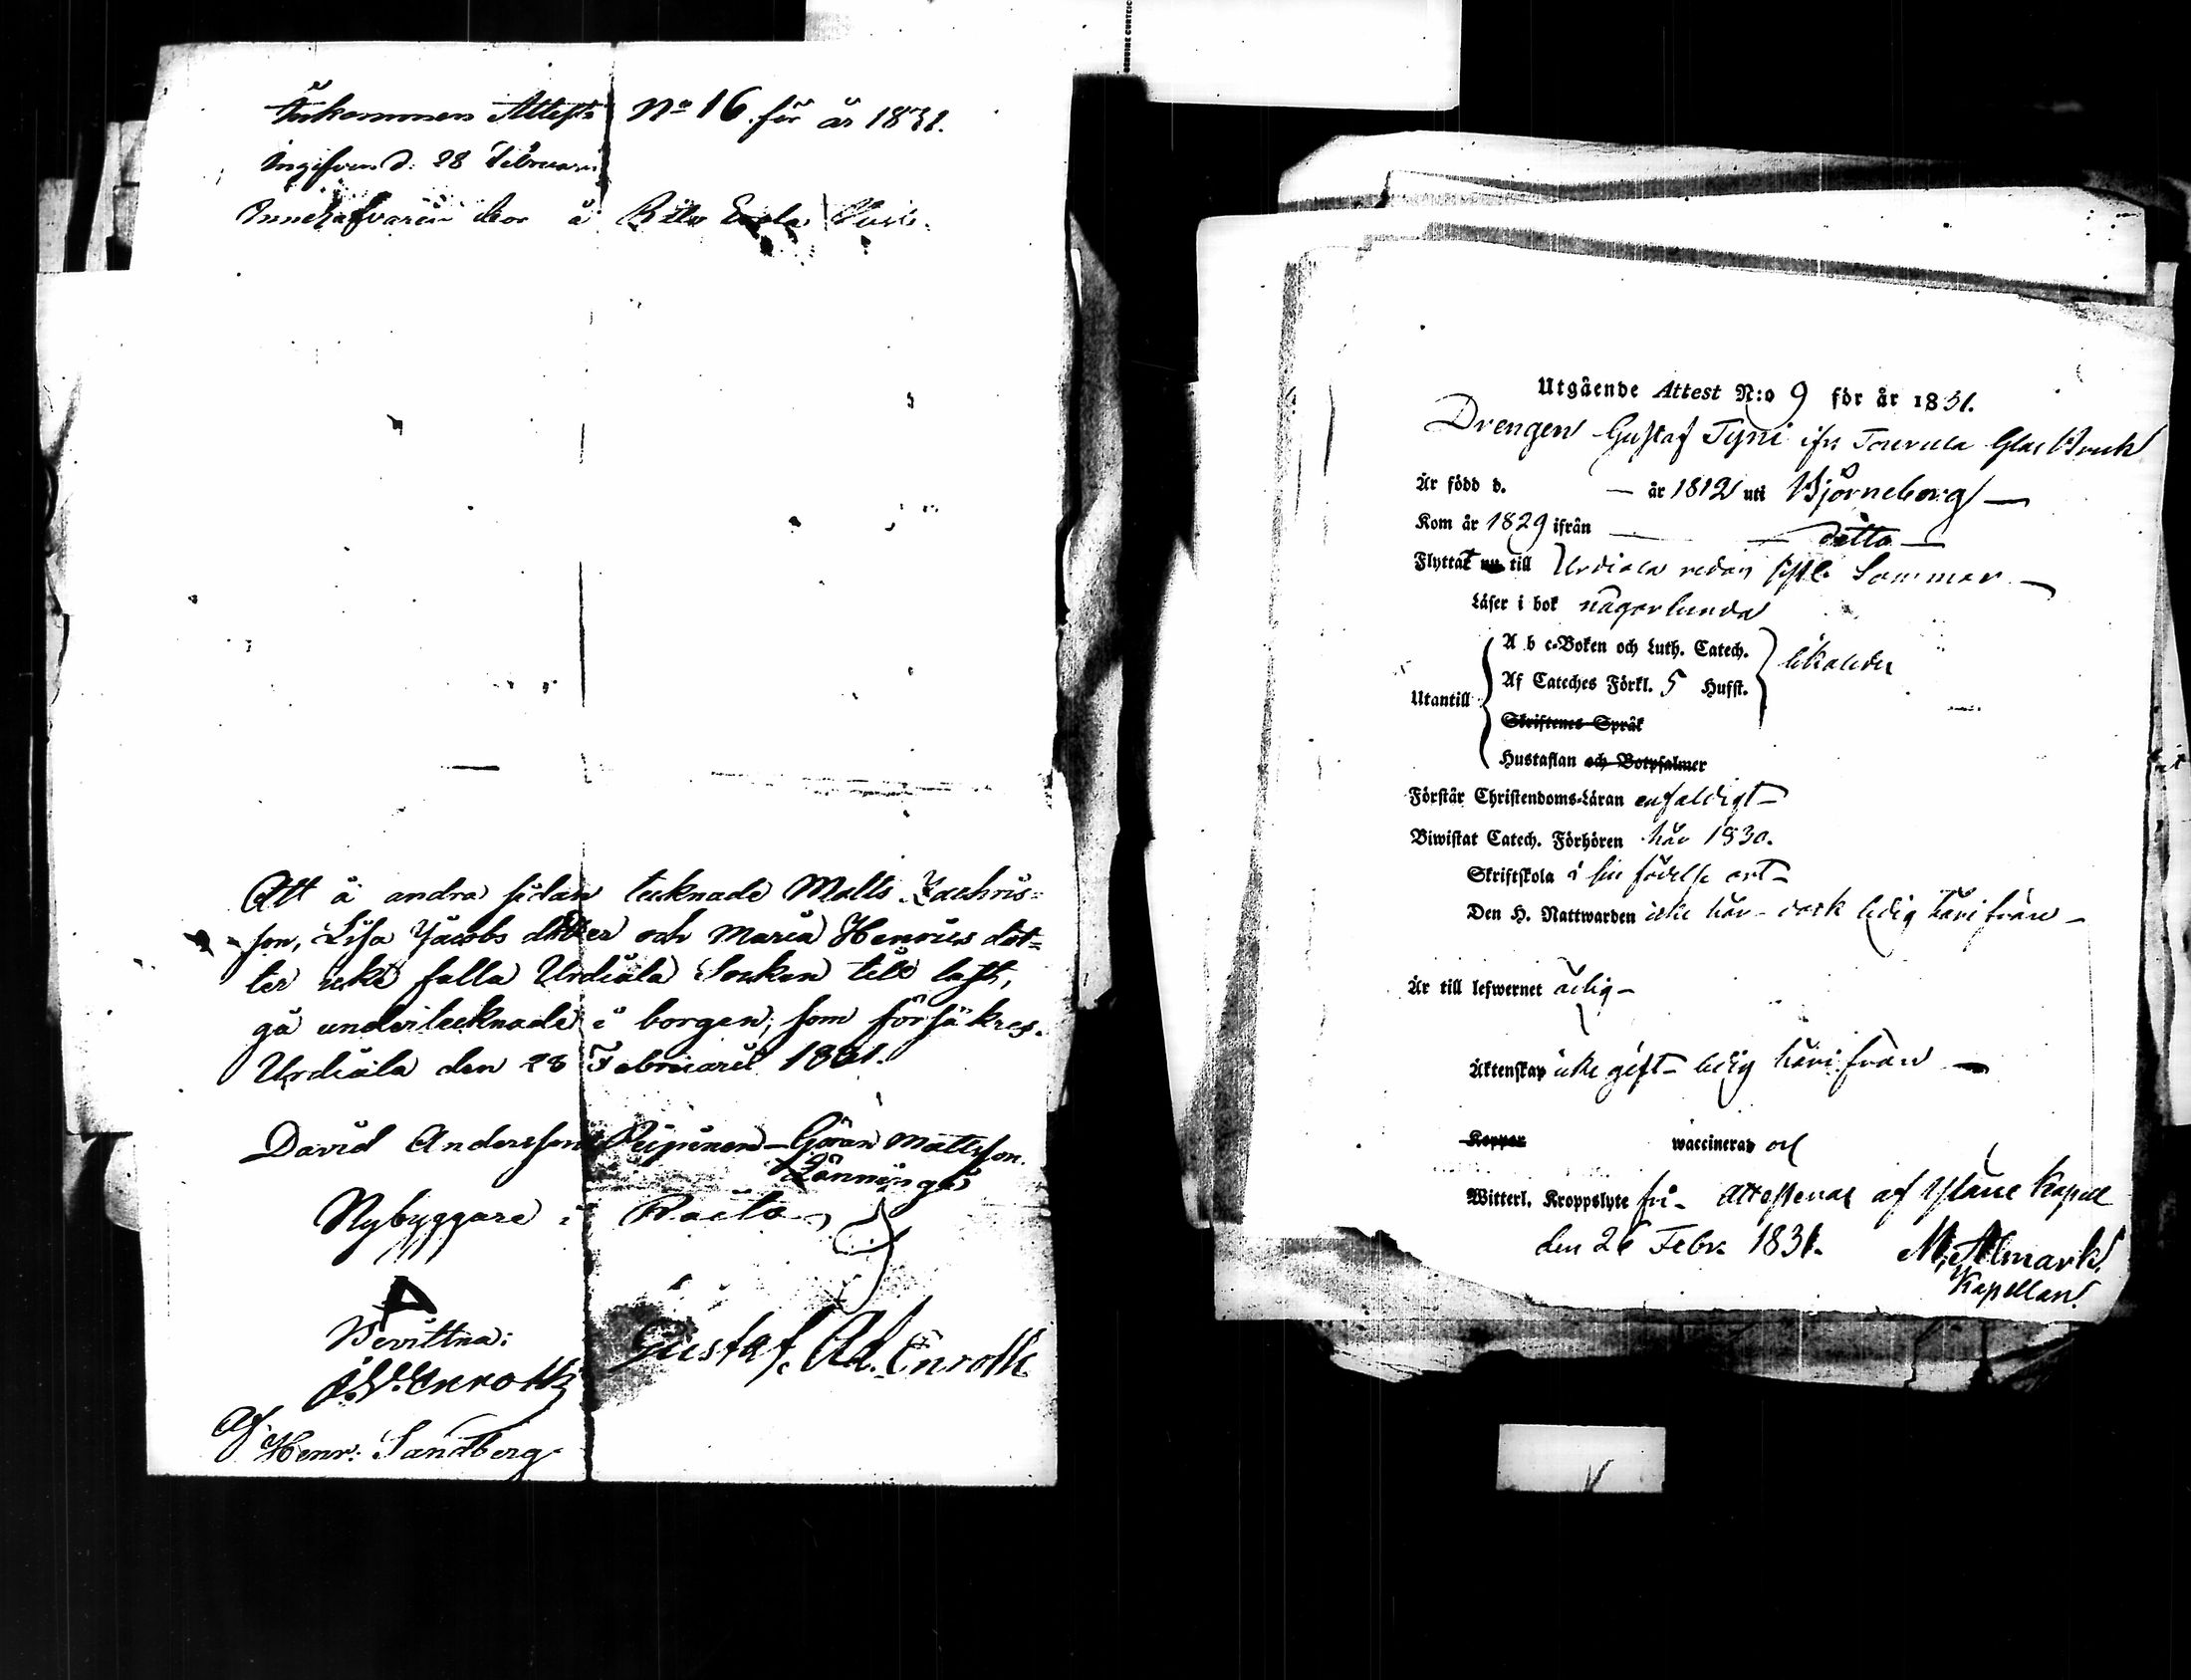 Inkommen Attest No 16. för år 1831.
Ingifven d. 28 Februarii
Innehafvaren bor å
Att å andra sidan tecknade Matts Zachris=
son, Lisa Jacobs dotter och Maria Henrics dot=
ter icke falla Urdiala Socken till last,
gå undertecknade i borgen, som försäkras.
Urdiala den 28 Februarii 1831.
David Andersson Göran Mattsson
Nybyggare i
Bevittna:
Gustaf. Ad. Enroth
Af
Henr: Sandberg
Utgående Attest N:o 9 för år 1831.
Drengen Gustaf Tyni ifrån Tourula Glas Bruk
Är född d. — år 1812 uti Björneborg —
Kom år 1829 ifrån — detto —
Flyttat nu till Urdiala redan sistl. Sommar —
Läser i bok någorlunda
A b c-Boken och Luth. Catech.
likaledes
Af Cateches Förkl. 5 Hufst.
Utantill
Skriftenes Språk
Hustaflan och Botpsalmer
Förstår Christendoms-Läran enfaldigt —
Biwistat Catech. Förhören här 1830.
Skriftskola i sin födelse ort —
Den H. Nattwarden icke här - dock ledig härifrån —
Är till lefwernet ärlig —
Äktenskap icke gift — ledig härifrån —
Koppor waccinerad och
Witterl. Kroppslyte fri — Attesteras af Yläne Kapell
den 26 Febr. 1831. M. Almark.
Kapellan.